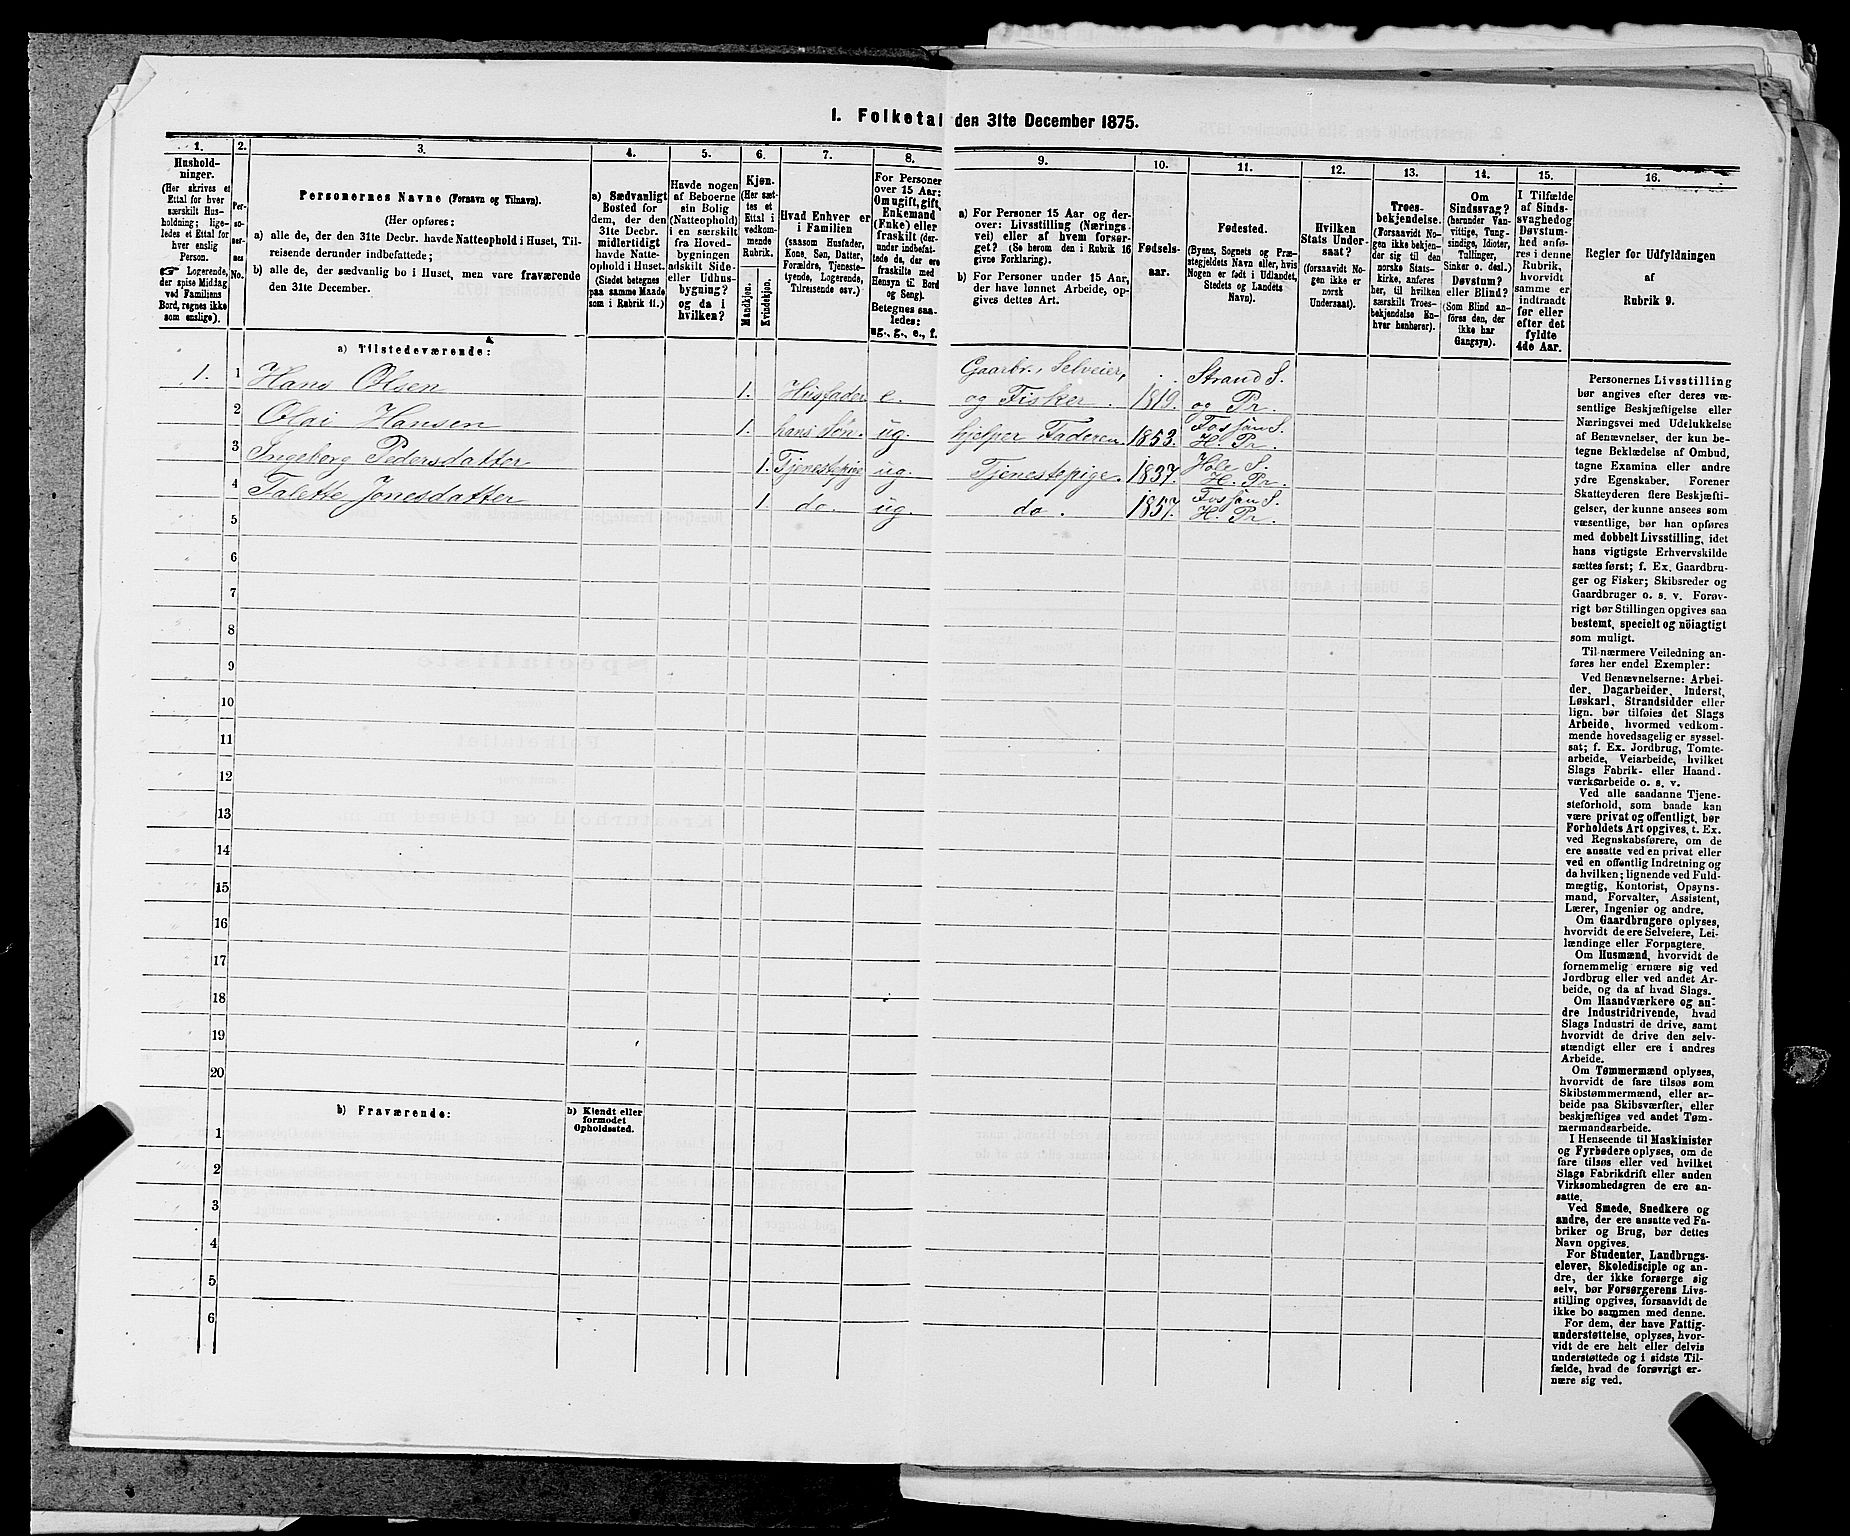 1. Folketal den 31te December 1875.
1.
Hushold-
ninger.
(Her skrives et
Ettal for hver
særskilt Hus-
holdning; lige-
ledes et Ettal for
hver enslig
Person.
☛ Logerende,
der spise Middag
ved Familiens
Bord, regnes ikke
som enslige).
2.
Per-
so-
ner-
nes
No.
3.
Personernes Navne (Fornavn og Tilnavn).
(Her opføres:
a) alle de, der den 31te Decbr. havde Natteophold i Huset, Til-
reisende derunder indbefattede;
b) alle de, der sædvanlig bo i Huset, men vare fraværende
den 31te December.
4.
a) Sædvanligt
Bosted for
dem, der den
31te Decbr.
midlertidigt
havde Natte-
ophold i Huset.
(Stedet betegnes
paa samme Maade
som i Rubrik 11.)
5.
Havde nogen
af Beboerne
sin Bolig
(Natteophold)
i en særskilt
fra Hoved-
bygningen
adskilt Side-
eller Udhus-
bygning?
og da i
hvilken?
6.
Kjøn.
(Her sæt-
tes et
Ettal i
vedkom-
mende
Rubrik.
Mandkjøn.
Kvindekjøn.
7.
Hvad Enhver er
i Familien
(saasom Husfader,
Kone, Søn, Datter,
Forældre, Tjeneste-
tyende, Logerende,
Tilreisende osv.)
8.
For Personer
over 15 Aar:
Om ugift, gift,
Enkemand
(Enke) eller
fraskilt (der-
under indbefat-
tede da, der ere
fraskilte med
Hensyn til Bord
og Seng).
Betegnes saa-
ledes:
ug., g., e., f.
9.
a) For Personer 15 Aar og der-
over: Livsstilling (Nærings-
vei) eller af hvem forsør-
get? (Se herom den i Rubrik 16
givne Forklaring).
b) For Personer under 15 Aar,
der have lønnet Arbeide, op-
gives dettes Art.
10.
Fødsels-
aar.
11.
Fødested.
(Byens, Sognets og Præ-
stegjeldets Navn eller, hvis
Nogen er født i Udlandet,
Stedets og Landets
Navn).
12.
Hvilken
Stats Under-
saat?
(forsaavidt No-
gen ikke er
norsk
Undersaat).
13.
Troes-
bekjendelse.
(Forsaavidt No-
gen ikke bekjen-
der sig til den
norske Stats-
kirke, anføres
her, til hvilken
særskilt Troes-
bekjendelse En-
hver henhører).
14.
Om
Sindssvag?
(herunder Van-
vittige, Tung-
sindige, Idioter,
Tullinger,
Sinker o. desl.)
Døvstum?
eller Blind?
(Som Blind an-
føres den, der
ikke har
Gangsyn).
15.
I Tilfælde
af Sinds-
svaghed og
Døvstum-
hed anfø-
res i denne
Rubrik,
hvorvidt
samme er
indtraadt
før eller
efter det
fyldte
4de Aar.
16.
Regler for Udfyldningen
af
Rubrik 9.
a) Tilstedeværende:
1. 1 Hans Olsen 1. Husfader e. Gaarbr., Selveier, og Fisker. 1819. Strand S. og Pr.
2 Olai Hansen 1. hans Søn. ug. hjelper Faderen 1853. Fossan S. H. Pr.
3 Ingeborg Pedersdatter 1. Tjenestepige ug. Tjenestepige. 1837. Hole S. H. Pr.
4 Talette Jonesdatter 1. do. ug. do. 1857. Fossan S. H. Pr.
5
6
7
8
9
10
11
12
13
14
15
16
17
18
19
20
b) Fraværende:
b) Kjendt eller
formodet
Opholdssted.
1
2
3
4
5
6
Personernes Livsstilling
bør angives efter deres væ-
sentlige Beskjæftigelse eller
Næringsvei med Udelukkelse
af Benævnelser, der kun be-
tegne Beklædelse af Ombud,
tagne Examina eller andre
ydre Egenskaber. Forener
Skatteyderen flere Beskjæfti-
gelser, der kunne ansees som
væsentlige, bør han opføres
med dobbelt Livsstilling, idet
hans vigtigste Erhvervskilde
sættes først; f. Ex. Gaardbru-
ger og Fisker; Skibsreder og
Gaardbruger o. s. v. Forøv-
rigt bør Stillingen opgives saa
bestemt, specielt og nøiagtigt
som muligt.
Til nærmere Veiledning an-
føres her endel Exempler:
Ved Benævnelserne: Arbei-
der, Dagarbeider, Inderst,
Løskarl, Strandsidder eller
lign. bør tilføies det Slags
Arbeide, hvormed vedkom-
mende hovedsagelig er syssel-
sat; f. Ex. Jordbrug, Tomte-
arbeide, Veiarbeide, hvilket
Slags Fabrik- eller Haand-
værksarbeide o. s. v.
Ved alle saadanne Tjene-
steforhold, som baade kan
være privat og offentligt, bør
Forholdets Art opgives, t. Ex.
ved Regnskabsførere, om de
ere ansatte ved en privat eller
ved en offentlig Indretning og
da hvilken; lignende ved Fuld-
mægtig, Kontorist, Opsyns-
mand, Forvalter, Assistent,
Lærer, Ingeniør og andre.
Om Gaardbrugere oplyses,
hvorvidt de ere Selveiere, Lei-
lændinge eller Forpagtere.
Om Husmænd, hvorvidt de
fornemmelig ernære sig ved
Jordbrug eller ved andet Ar-
beide, og da af hvad Slags.
Om Haandværkere og an-
dre Industridrivende, hvad
Slags Industri de drive, samt
hvorvidt de drive den selv-
stændigt eller ere i andres
Arbeide.
Om Tømmermænd oplyses,
hvorvidt de fare tilsøs som
Skibstømmermænd, eller ar-
beide paa Skibsværfter, eller
beskjæftiges ved andet Tøm-
mermandsarbeide.
I Henseende til Maskinister
og Fyrbødere oplyses, om de
fare tilsøs eller ved hvilket
Slags Fabrikdrift eller anden
Virksomhedsgren de ere an-
satte.
Ved Smede, Snedkere og
andre, der ere ansatte ved Fa-
briker og Brug, bør dettes
Navn opgives.
For Studenter, Landbrugs-
elever, Skoledisciple og an-
dre, der ikke forsørge sig
selv, bør Forsørgerens Livs-
stilling opgives, forsaavidt de
ikke bo sammen med denne.
For dem, der have Fattig-
understøttelse, oplyses, hvor-
vidt de ere helt eller delvis
understøttede og i sidste Til-
fælde, hvad de forøvrigt er-
nære sig ved.